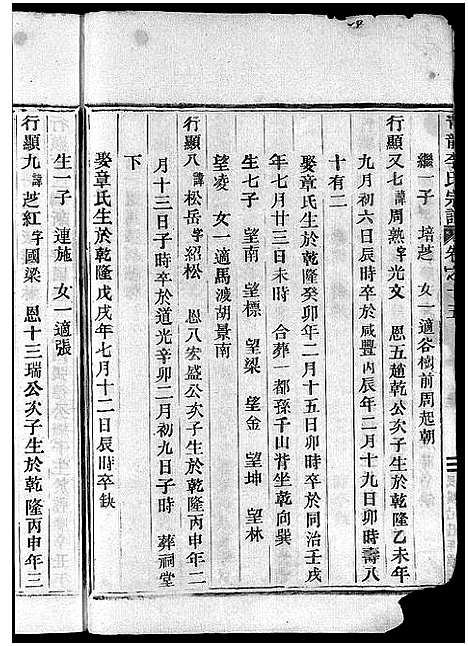 李氏宗譜
繼一子　培芝　女一適谷樹前周起朝
行顯又七諱周熟字光文　恩五趙乾公次子生於乾隆乙未年
九月初六日辰時卒於咸豐丙辰年二月十九日卯時壽八
十有二
娶章氏生於乾隆癸卯年二月十五日卯時卒於同治壬戌
年七月廿三日未時　合葬一都孫千山背坐乾向巽
生七子　望南　望標　望梁　望金　望坤　望林
望凌　女一適馬渡胡景南
行顯八諱松岳字紹松　恩八宏盛公次子生於乾隆丙申年二
月十三日子時卒於道光辛卯二月初九日子時　葬祠堂
下
娶章氏生於乾隆戊戌年七月十二日辰時卒缺
生一子　連施　女一適張
行顯九諱芝紅字國梁　恩十三瑞公次子生於乾隆丙申年三